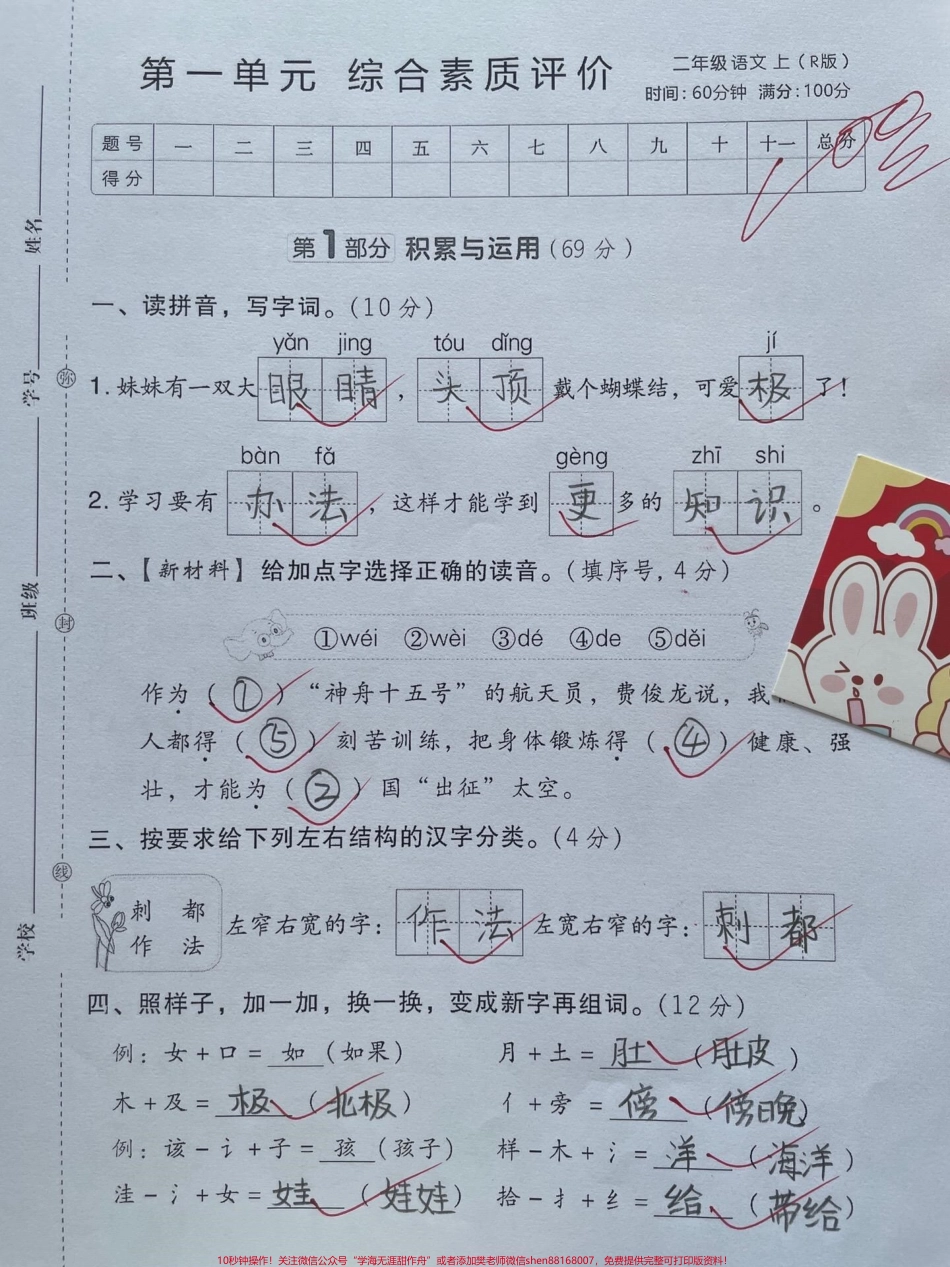 第一单元 综合素质评价
二年级 语文 上（R版）
时间：60分钟 满分：100分
题号 一 二 三 四 五 六 七 八 九 十 十一 总分
得分
100
第1部分 积累与运用（69分）
一、读拼音，写字词。（10分）
yǎn jīng tóu dǐng jí
1. 妹妹有一双大眼睛，头顶戴个蝴蝶结，可爱极了！
bàn fǎ gèng zhī shi
2. 学习要有办法，这样才能学到更多的知识。
二、【新材料】给加点字选择正确的读音。（填序号，4分）
①wéi ②wèi ③dé ④de ⑤děi
作为（①）“神舟十五号”的航天员，费俊龙说，我
人都得（⑤）刻苦训练，把身体锻炼得（④）健康、强
壮，才能为（②）国“出征”太空。
三、按要求给下列左右结构的汉字分类。（4分）
刺 都
作 法
左窄右宽的字：作法 左宽右窄的字：刺都
四、照样子，加一加，换一换，变成新字再组词。（12分）
例：女＋口＝如（如果） 月＋土＝肚（肚皮）
木＋及＝极（北极） 亻＋旁＝傍（傍晚）
例：该－讠＋子＝孩（孩子） 样－木＋氵＝洋（海洋）
洼－氵＋女＝娃（娃娃） 拾－扌＋纟＝给（带给）
学校 班级 学号 姓名
线 封 弥
10秒钟操作！关注微信公众号“学海无涯甜作舟”或者添加樊老师微信shen88168007，免费提供完整可打印版资料！